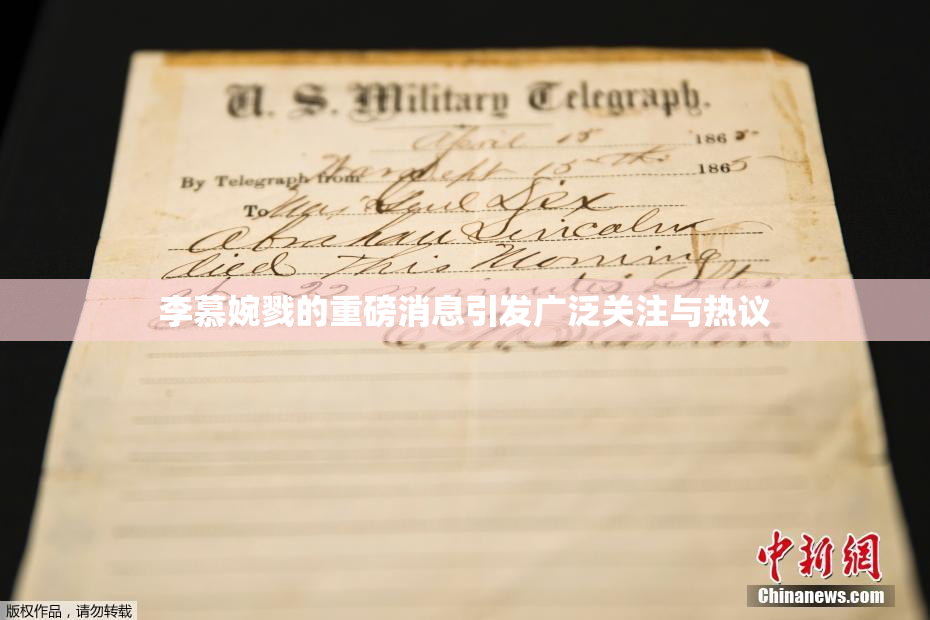 U. S. Military Telegraph.
April 15 1865
By Telegraph from War Dept 15th 1865
To Maj Genl Dix
Abraham Lincoln
died This Morning
at 22 minutes after
李慕婉戮的重磅消息引发广泛关注与热议
E. M. Stanton
中新网
Chinanews.com
版权作品，请勿转载